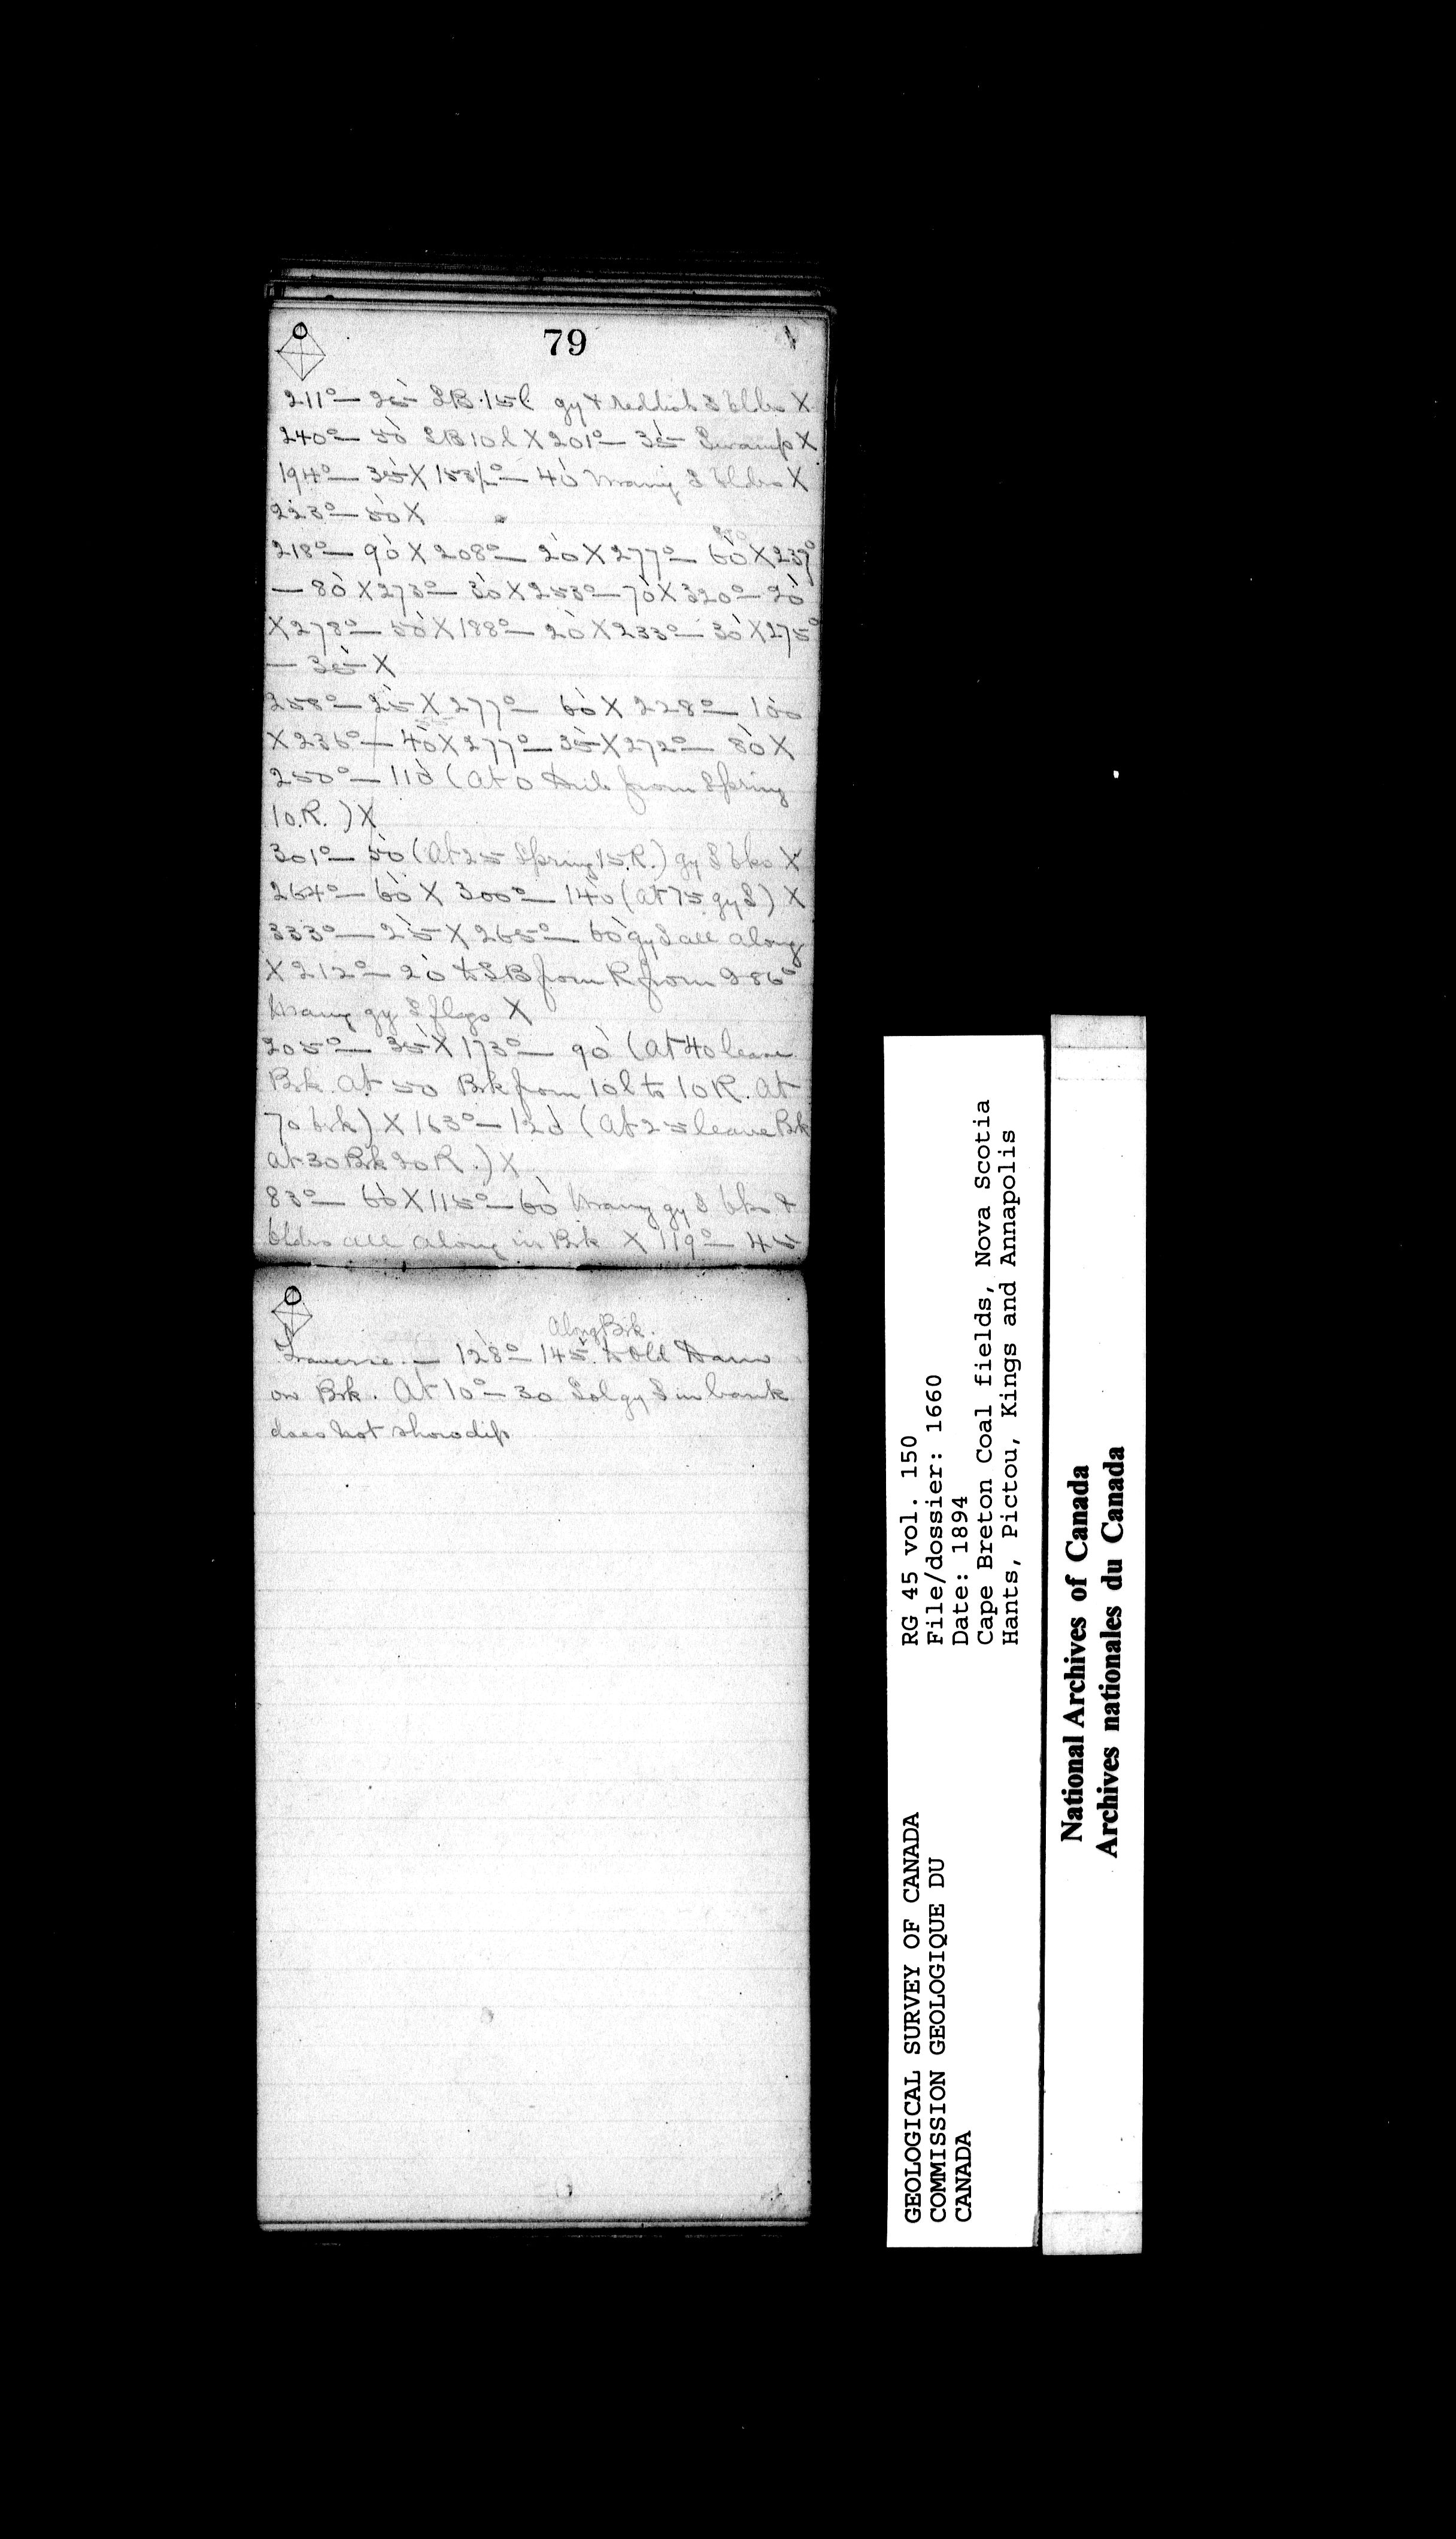 79
211°— 25 SB 15l gy & reddish S bldrs X
240°— 50 SB 10l X 201°— 35 Swamp X
194°— 35 X 153½°— 40 Many S bldrs X
223°— 50 X
218°— 90 X 208°— 20 X 277°— 60 X 237°
— 80 X 273°— 30 X 253°— 70 X 320°— 20
X 278°— 50 X 188°— 20 X 233°— 30 X 275°
— 35 X
258°— 25 X 277°— 60 X 228°— 100
X 236°— 40 X 277°— 35 X 272°— 80 X
250°— 110 (at 0 from Spring
10.R.) X
301°— 50 (At 25 Spring 15.R.) gy S bks X
264°— 60 X 300°— 140 (at 75 gy S) X
333°— 25 X 265°— 60 gy S all along
X 212°— 20 to SB from R from 286°
Many gy S flags X
205°— 35 X 173°— 90 (at 40 leave
Brk. At 50 Brk from 10l to 10R. At
70 brk) X 163°— 120 (At 25 leave Brk
at 30 Brk 20R.) X
83°— 60 X 115°— 60 Many gy S bks &
bldrs all along in Brk X 119°— 45
Along Brk.
Traverse — 128°— 145 to Old Dam
on Brk. At 10°— 30 Sol gy S in bank
does not show dip
GEOLOGICAL SURVEY OF CANADA
COMMISSION GEOLOGIQUE DU
CANADA
RG 45 vol. 150
File/dossier: 1660
Date: 1894
Cape Breton Coal fields, Nova Scotia
Hants, Pictou, Kings and Annapolis
National Archives of Canada
Archives nationales du Canada